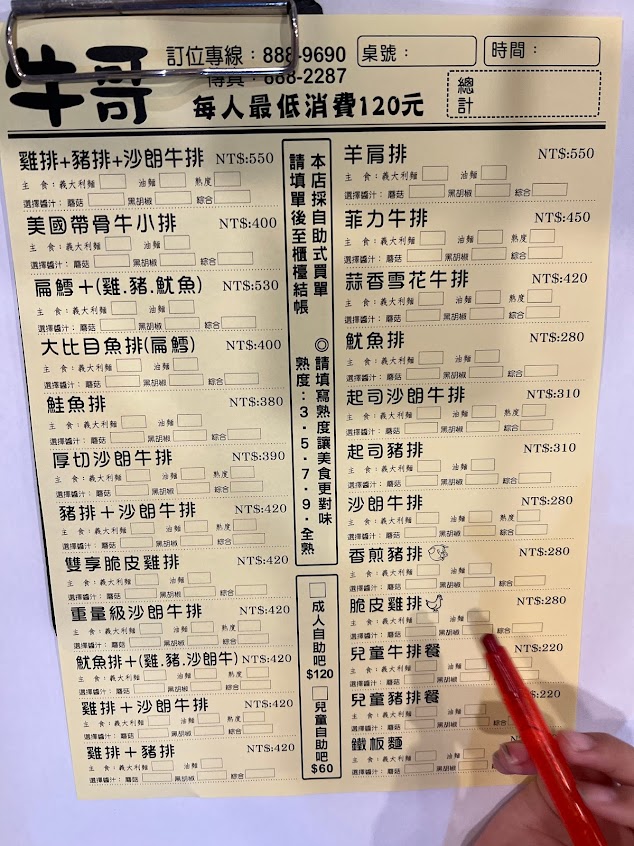 牛哥
訂位專線：888-9690
傳真：888-2287
每人最低消費120元
桌號：
時間：
總計
雞排+豬排+沙朗牛排 NT$:550
主 食：義大利麵 油麵 熟度
選擇醬汁：蘑菇 黑胡椒 綜合
美國帶骨牛小排 NT$:400
主 食：義大利麵 油麵
選擇醬汁：蘑菇 黑胡椒 綜合
扁鱈+(雞.豬.魷魚) NT$:530
主 食：義大利麵 油麵
選擇醬汁：蘑菇 黑胡椒 綜合
大比目魚排(扁鱈) NT$:400
主 食：義大利麵 油麵
選擇醬汁：蘑菇 黑胡椒 綜合
鮭魚排 NT$:380
主 食：義大利麵 油麵
選擇醬汁：蘑菇 黑胡椒 綜合
厚切沙朗牛排 NT$:390
主 食：義大利麵 油麵 熟度
選擇醬汁：蘑菇 黑胡椒 綜合
豬排+沙朗牛排 NT$:420
主 食：義大利麵 油麵 熟度
選擇醬汁：蘑菇 黑胡椒 綜合
雙享脆皮雞排 NT$:420
主 食：義大利麵 油麵
選擇醬汁：蘑菇 黑胡椒 綜合
重量級沙朗牛排 NT$:420
主 食：義大利麵 油麵 熟度
選擇醬汁：蘑菇 黑胡椒 綜合
魷魚排+(雞.豬.沙朗牛) NT$:420
主 食：義大利麵 油麵 熟度
選擇醬汁：蘑菇 黑胡椒 綜合
雞排+沙朗牛排 NT$:420
主 食：義大利麵 油麵 熟度
選擇醬汁：蘑菇 黑胡椒 綜合
雞排+豬排 NT$:420
主 食：義大利麵 油麵
選擇醬汁：蘑菇 黑胡椒 綜合
本店採自助式買單
請填單後至櫃檯結帳
◎請填寫熟度讓美食更對味
熟度：3．5．7．9．全熟
成人自助吧
$120
兒童自助吧
$60
羊肩排 NT$:550
主 食：義大利麵 油麵
選擇醬汁：蘑菇 黑胡椒 綜合
菲力牛排 NT$:450
主 食：義大利麵 油麵 熟度
選擇醬汁：蘑菇 黑胡椒 綜合
蒜香雪花牛排 NT$:420
主 食：義大利麵 油麵 熟度
選擇醬汁：蘑菇 黑胡椒 綜合
魷魚排 NT$:280
主 食：義大利麵 油麵
選擇醬汁：蘑菇 黑胡椒 綜合
起司沙朗牛排 NT$:310
主 食：義大利麵 油麵 熟度
選擇醬汁：蘑菇 黑胡椒 綜合
起司豬排 NT$:310
主 食：義大利麵 油麵
選擇醬汁：蘑菇 黑胡椒 綜合
沙朗牛排 NT$:280
主 食：義大利麵 油麵 熟度
選擇醬汁：蘑菇 黑胡椒 綜合
香煎豬排 NT$:280
主 食：義大利麵 油麵
選擇醬汁：蘑菇 黑胡椒 綜合
脆皮雞排 NT$:280
主 食：義大利麵 油麵
選擇醬汁：蘑菇 黑胡椒 綜合
兒童牛排餐 NT$:220
主 食：義大利麵 油麵
選擇醬汁：蘑菇 黑胡椒
兒童豬排餐 :220
主 食：義大利麵 油麵
選擇醬汁：蘑菇 黑胡椒
鐵板麵
主 食：義大利麵 油麵
選擇醬汁：蘑菇 黑胡椒